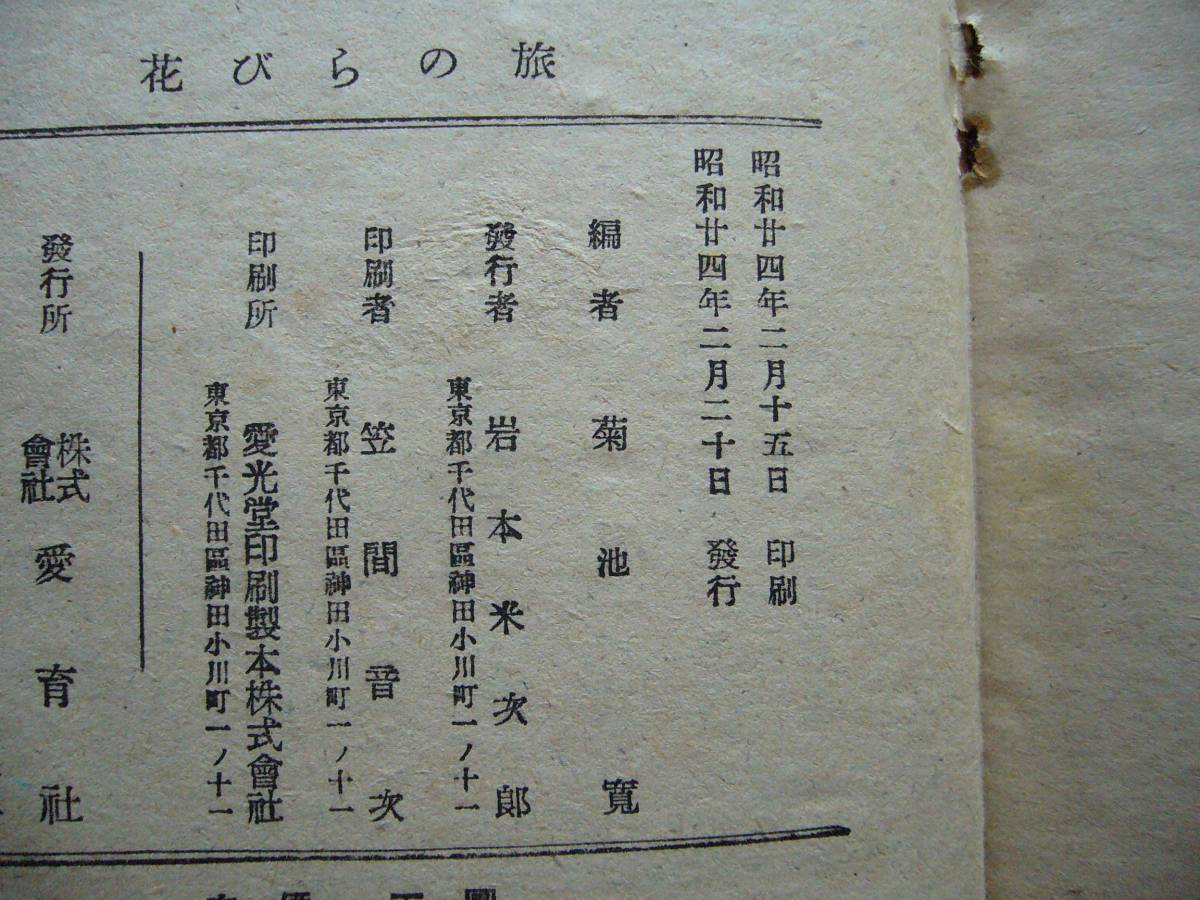 花びらの旅
昭和廿四年二月十五日 印刷
昭和廿四年二月二十日 發行
編者 菊池寬
發行者 岩本米次郎
東京都千代田區神田小川町一ノ十一
印刷者 笠間音次
東京都千代田區神田小川町一ノ十一
印刷所 愛光堂印刷製本株式會社
東京都千代田區神田小川町一ノ十一
發行所 株式會社 愛育社